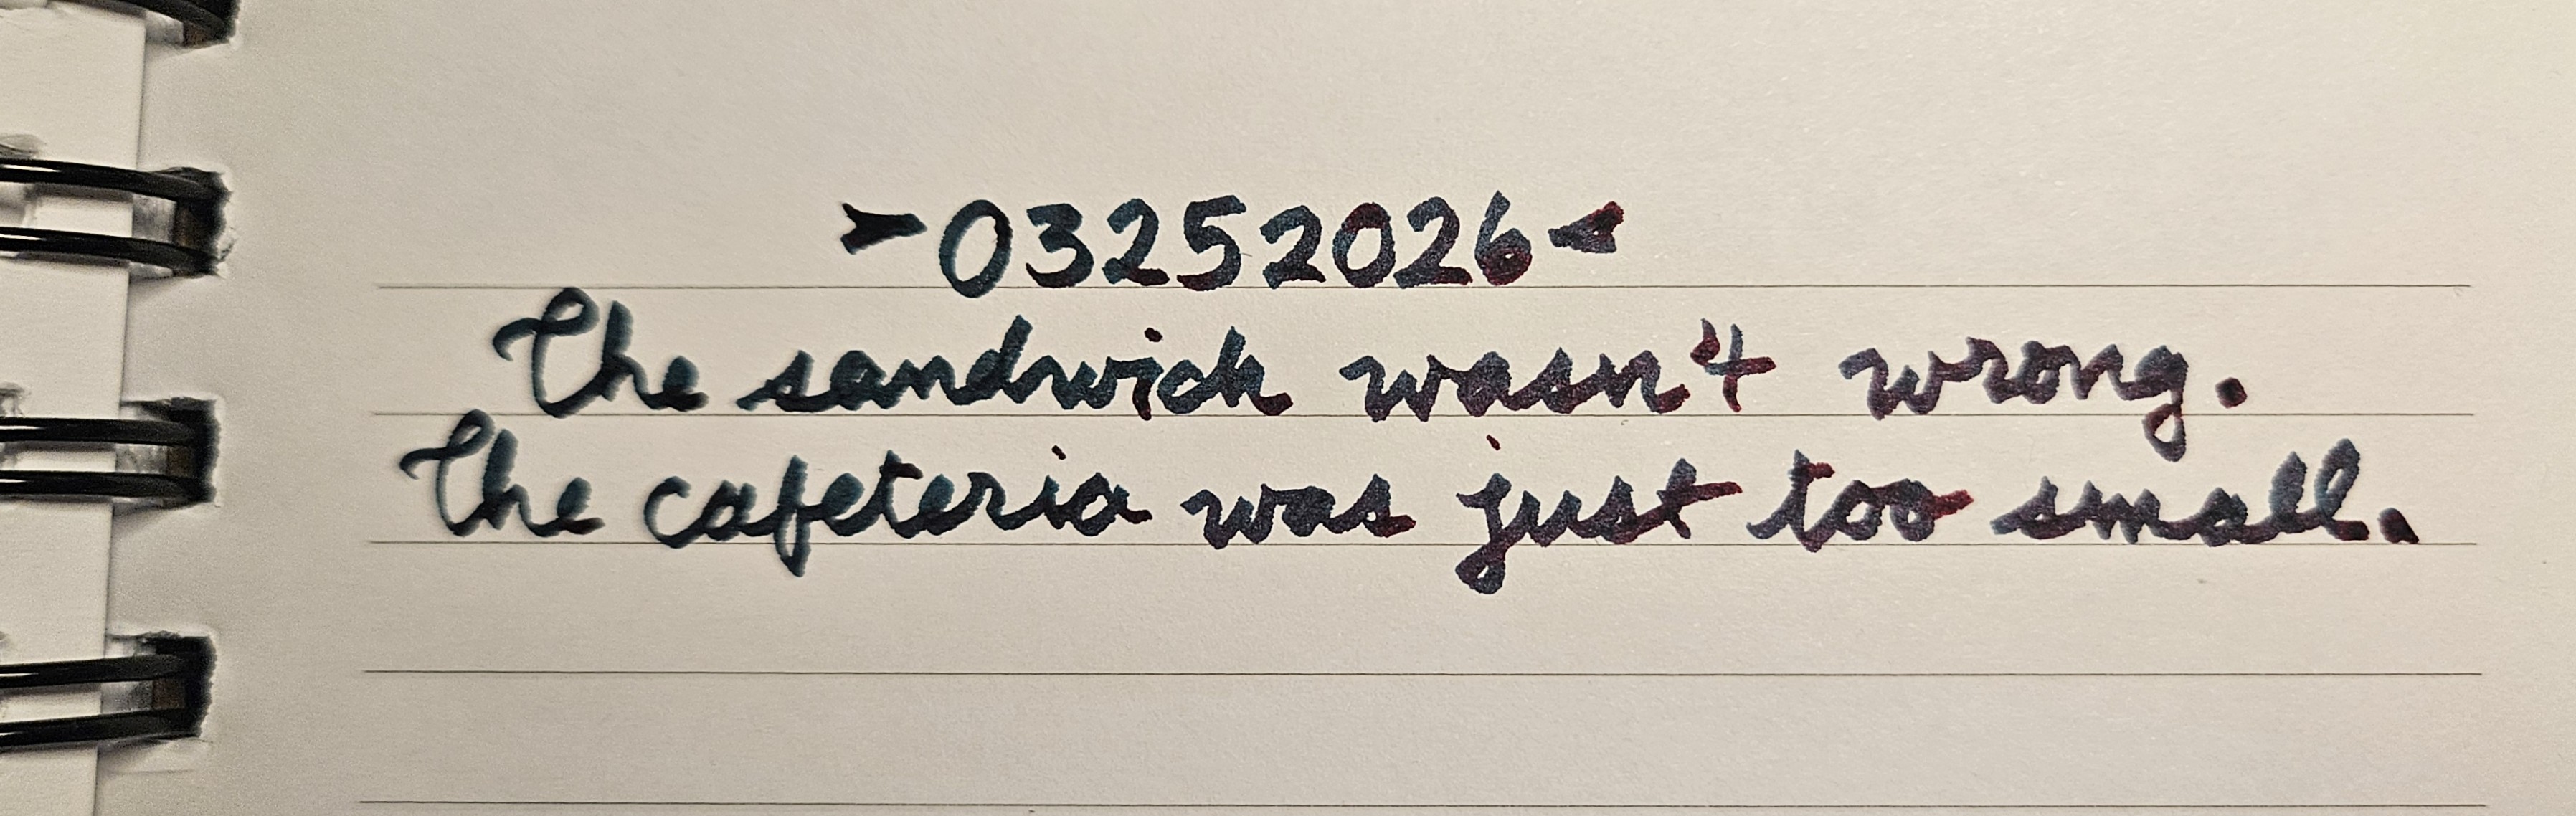 ➤03252026◄
The sandwich wasn't wrong.
The cafeteria was just too small.